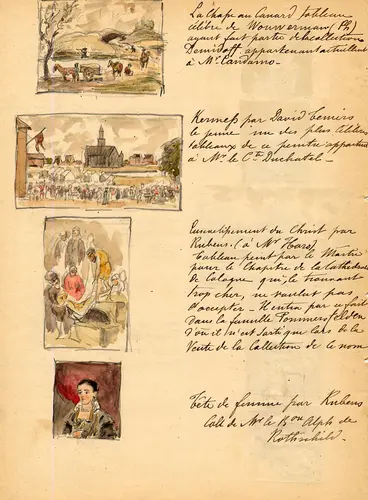 La Chasse au Canard tableau
célèbre de Wouwerman (Ph)
ayant fait partie de la collection
Demidoff appartenant actuellement
à Mr.
Kermess par David Teniers
le jeune un des plus célèbres
tableaux de ce peintre appartient
à Mr le Cte Duchatel -
Ensevelissement du Christ par
Rubens. (à Mr Haro)
tableau peint par le Maître
pour le Chapitre de la Cathédrale
de Cologne qui le trouvant
trop cher, ne voulut pas
l'accepter - Rentra par ce fait
dans la famille Pommersfelden
d'où il n'est sorti que lors de la
Vente de la Collection de ce nom
Tête de femme par Rubens
Coll. de Mr le Bon Alph de
Rothschild -